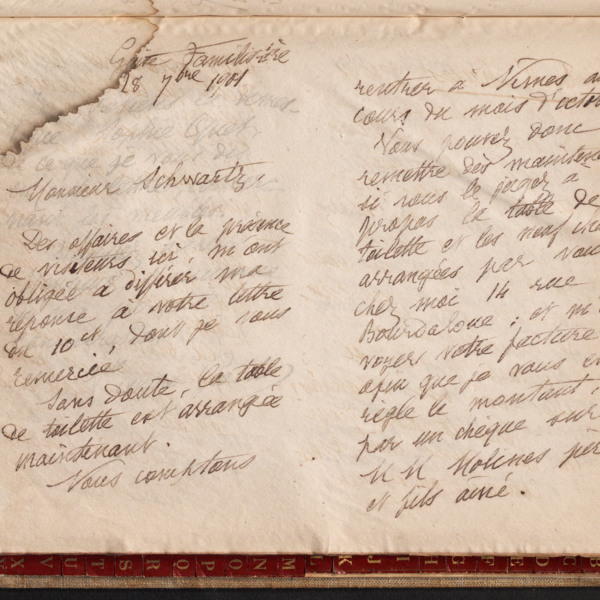 Guise Familistère
28 7bre 1901
Monsieur Schwartz
Des affaires et la présence
de visiteurs ici, m'ont
obligée à différer ma
réponse à votre lettre
du 10 ct, dont je vous
remercie
Sans doute, la table
de toilette est arrangée
maintenant.
Nous comptons
rentrer à Nimes au
cours du mois d'octo
Vous pouvez donc
remettre dès maintena
si vous le jugez à
propos la table de
toilette et les neuf cha
arrangées par vou
chez moi 14 rue
Bourdaloue ; et m'
voyer votre facture
afin que je vous en
règle le montant,
par un chèque sur
MM Molines pèr
et fils ainé.
X
X
V
U
T
S
R
Q
P
O
N
M
L
K
J
I
H
G
F
E
D
C
B